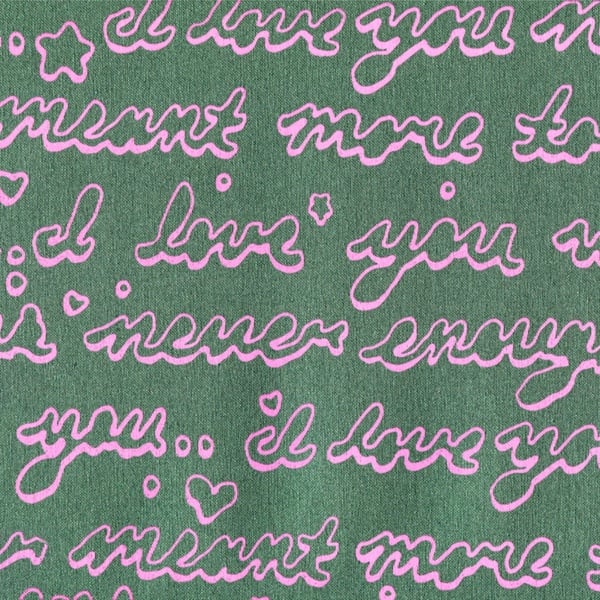 I love you
meant more to
I love you
never enoug
you.. I love yo
meant more